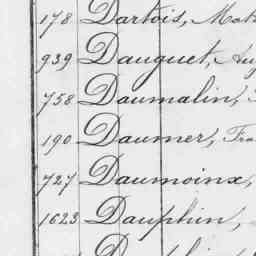 178 Dartois, Mat
939 Dauguet, Aug
758 Daumalin,
190 Daumer, Fra
727 Daumoinx,
1623 Dauphin,